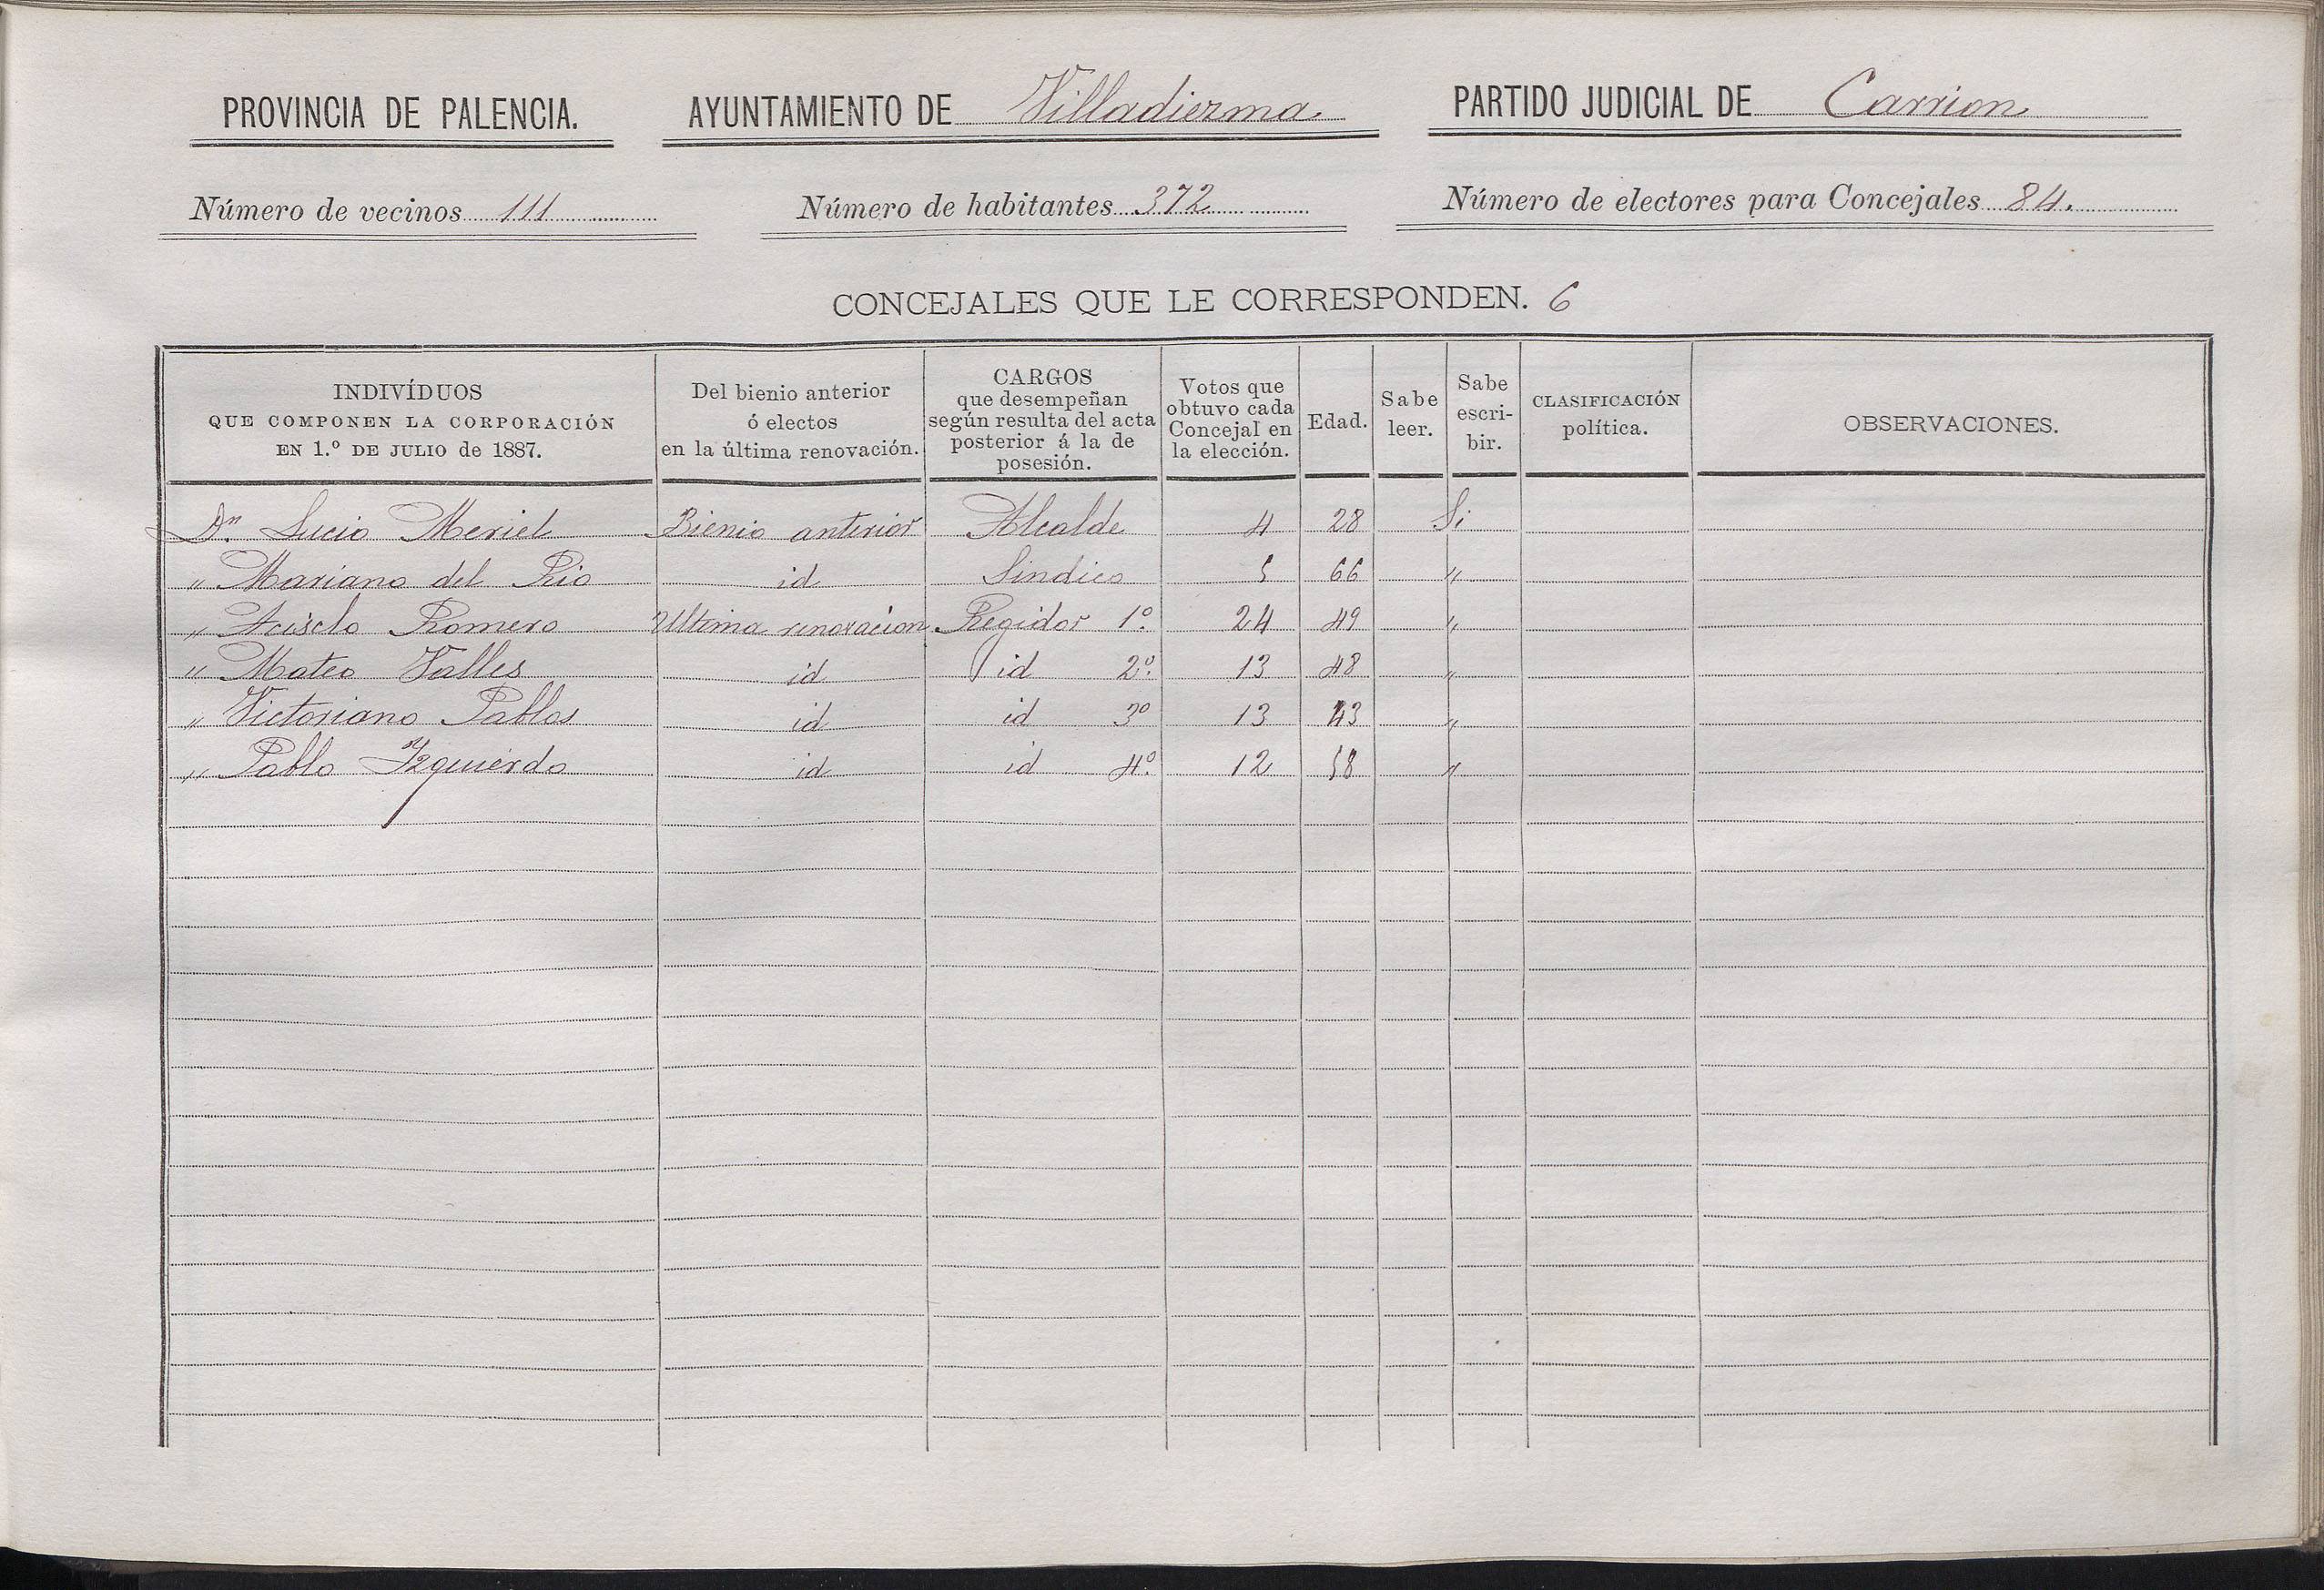 PROVINCIA DE PALENCIA. AYUNTAMIENTO DE Villadiezma PARTIDO JUDICIAL DE Carrion
Número de vecinos 111 Número de habitantes 372 Número de electores para Concejales 84.
CONCEJALES QUE LE CORRESPONDEN. 6
INDIVÍDUOS
QUE COMPONEN LA CORPORACIÓN
EN 1.º DE JULIO de 1887.
Del bienio anterior
ó electos
en la última renovación.
CARGOS
que desempeñan
según resulta del acta
posterior á la de
posesión.
Votos que
obtuvo cada
Concejal en
la elección.
Edad.
Sabe
leer.
Sabe
escri-
bir.
CLASIFICACIÓN
política.
OBSERVACIONES.
Dn. Lucio Meriel Bienio anterior Alcalde 4 28 Si
" Mariano del Rio id Sindico 5 66 "
" Acisclo Romero Ultima renovacion Regidor 1º. 24 49 "
" Mateo Valles id id 2º. 13 48 "
" Victoriano Pablos id id 3º 13 43 "
" Pablo Izquierdo id id 4º. 12 58 "